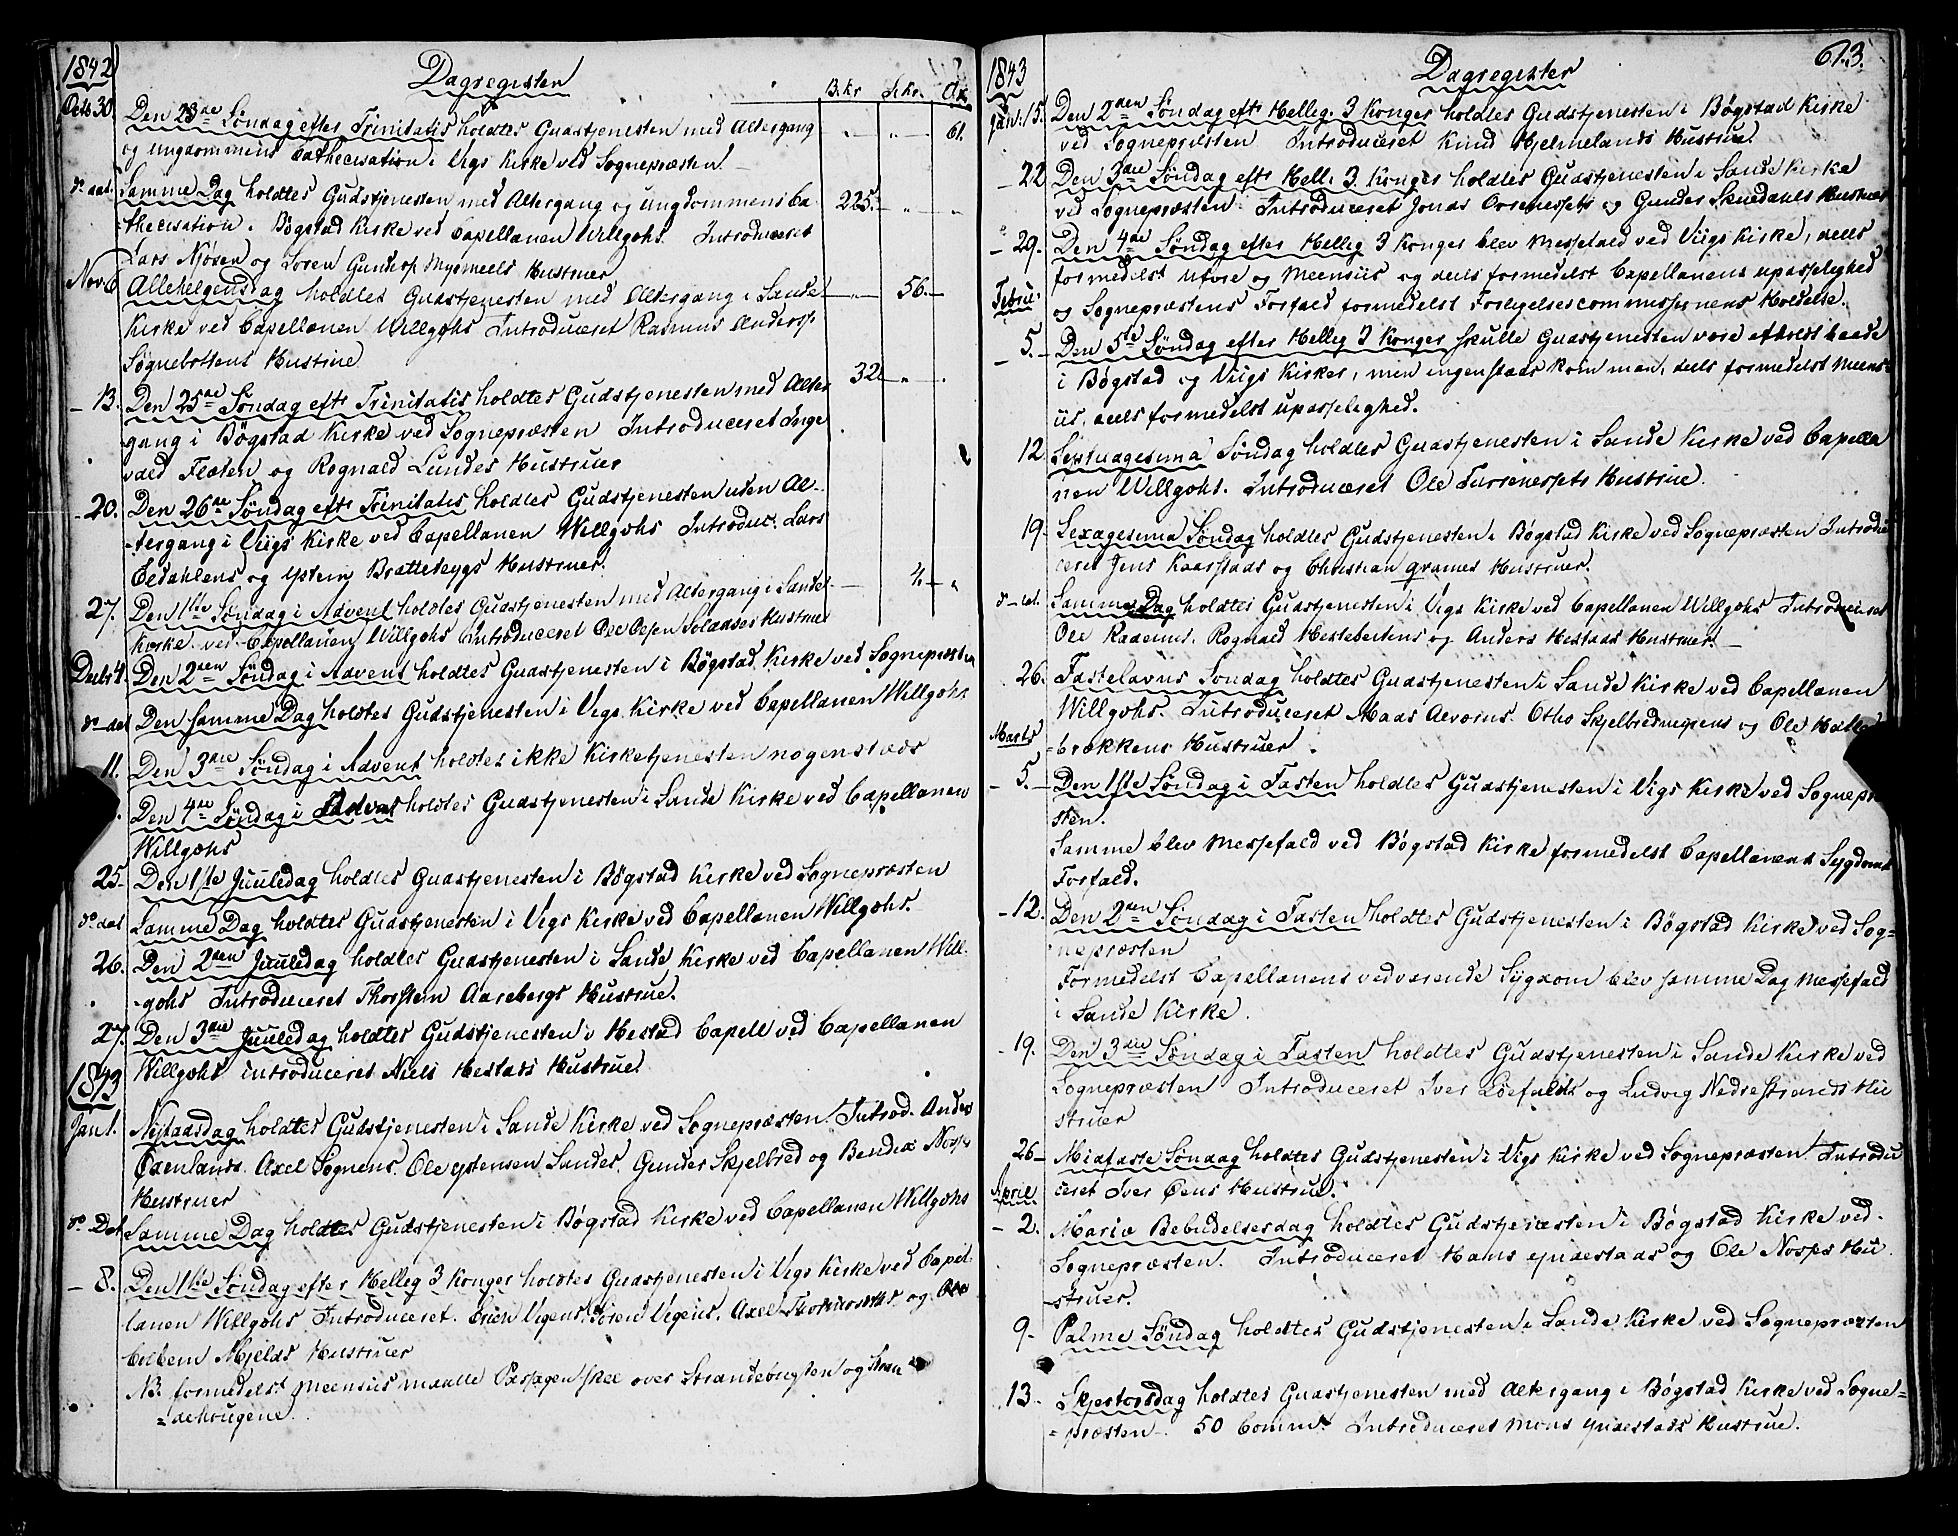 1842
Dagregister
B.kr S.kr. V.k.
Octb 30. Den 23de Søndag efter Trinitatis holdtes Gudstjenesten med Altergang — — 61.
og ungdommens Cathecisation i Viigs Kirke ved Sognepræsten. —
do dat. Samme Dag holdtes Gudstjenesten med Altergang og ungdommens Ca- 225. — "
thecisation i Bøgstad Kirke ved Capellanen Willgohs. Introduceret
Lars Njøsen og Søren Gunders. Mysmeels Hustruer
Nov 6 Allehelgensdag holdtes Gudstjenesten med Altergang i Sande — 56. —
Kirke ved Capellanen Willgohs Introduceret Rasmus Anders.
Søgnebottens Hustrue
13. Den 25de Søndag eftr Trinitatis holdtes Gudstjenesten med Alter 32. " .
gang i Bøgstad Kirke ved Sognepræsten Introduceret Inge
vald Flæten og Rognald Lundes Hustruer
20. Den 26de Søndag eftr Trinitatis holdtes Gudstjenesten uden Al-
tergang i Viigs Kirke ved Capellanen Willgohs Introduc. Lars
Eldahlens og Ystein Bratteteygs Hustruer.
27. Den 1ste Søndag i Advent holdtes Gudstjenesten med Altergang i Sande — 4. — "
Kirke ved Capellanen Willgohs Introduceret Ole Olsen Hustrue
Decbr 4. Den 2den Søndag i Advent holdtes Gudstjenesten i Bøgstad Kirke ved Sognepræsten
do dat Den samme Dag holdtes Gudstjenesten i Vigs Kirke ved Capellanen Willgohs
11. Den 3die Søndag i Advent holdtes ikke Kirketjenesten nogenstads
Den 4de Søndag i Advent holdtes Gudstjenesten i Sande Kirke ved Capellanen
Willgohs
25. Den 1ste Juuledag holdtes Gudstjenesten i Bøgstad Kirke ved Sognepræsten
do dat Samme Dag holdtes Gudstjenesten i Vigs Kirke ved Capellanen Willgohs.
26. Den 2den Juuledag holdtes Gudstjenesten i Sande Kirke ved Capellanen Will-
gohs Introduceret Thorstein Aarebergs Hustrue.
27. Den 3die Juuledag holdtes Gudstjenesten i Hestad Capell ved Capellanen
Willgohs introduceret Niels Hestads Hustrue.
1843
Jan 1. Nytaarsdag holdtes Gudstjenesten i Sande Kirke ved Sognepræsten. Introd. Anders
Øxenlands. Axel Sognens. Ole Ystensen Sandes. Gunder Skjelbred og Bendix
Hustruer
do Dat Samme Dag holdtes Gudstjenesten i Bøgstad Kirke ved Capellanen Willgohs
8. Den 1ste Søndag efter Hellig 3 Konger holdtes Gudstjenesten i Vigs Kirke ved Capel-
lanen Willgohs Introduceret. Erich Vigens. Søren Vigens. Axel og Ole
Mjelds Hustruer
NB. formedelst Meeniis maatte Passagen skee over Strandebugten og Stran
dehougene.
1843
Dagregister
613.
Jan. 15. Den 2den Søndag eftr Hellig. 3 Konger holdtes Gudstjenesten i Bøgstad Kirke
ved Sognepræsten Introduceret Knud Hjelmelands Hustrue.
22 Den 3die Søndag eftr Hell. 3 Konger holdtes Gudstjenesten i Sande Kirke
ved Sognepræsten. Introduceret Jonas og Gunder Skuedahls Hustruer
29. Den 4de Søndag efter Hellig 3 Konger blev Messefald ved Viigs Kirke, deels
formedelst Uføre og Meeniis og deels formedelst Capellanens upasselighed
Febru: og Sognepræstens Forfald formedelst Forligelsescommissionens Holdelse.
5. Den 5te Søndag efter Hellig 3 Konger skulle Gudstjenesten være afholdt baade
i Bøgstad og Viigs Kirker, men ingenstads kom man, deels formedelst Meen-
iis, deels formedelst upasselighed.
12. Septuagesima Søndag holdtes Gudstjenesten i Sande Kirke ved Capella
nen Willgohs. Introduceret Ole Hustrue.
19. Sexagesima Søndag holdtes Gudstjenesten i Bøgstad Kirke ved Sognepræsten Introdu
ceret Jens Kaarstads og Christian Hustruer.
do dat. Samme Dag holdtes Gudstjenesten i Vigs Kirke ved Capellanen Willgohs Introduceret
Ole Rognald Hestebeitens og Anders Hestads Hustruer. —
26. Fastelavns Søndag holdtes Gudstjenesten i Sande Kirke ved Capellanen
Willgohs. Introduceret Mads Otho og Ole
Marts brækkens Hustruer.
5. Den 1ste Søndag i Fasten holdtes Gudstjenesten i Vigs Kirke ved Sognepræ
sten.
Samme blev Messefald ved Bøgstad Kirke formedelst Capellanens Sygdoms
Forfald.
12. Den 2den Søndag i Fasten holdtes Gudstjenesten i Bøgstad Kirke ved Sog-
nepræsten
Formedelst Capellanens vedvarende Sygdom blev samme Dag Messefald
i Sande Kirke.
19. Den 3die Søndag i Fasten holdtes Gudstjenesten i Sande Kirke ved
Sognepræsten Introduceret Iver og Ludvig Nedrestrands Hu
struer
26 Midfaste Søndag holdtes Gudstjenesten i Vigs Kirke ved Sognepræsten Introdu
April ceret Iver Øens Hustrue.
2. Mariæ Bebudelsesdag holdtes Gudstjenesten i Bøgstad Kirke ved
Sognepræsten. Introduceret Hans Yndestads og Ole Hu
struer.
9. Palme Søndag holdtes Gudstjenesten i Sande Kirke ved Sognepræsten
13. Skjertorsdag holdtes Gudstjenesten med Altergang i Bøgstad Kirke ved Sogne-
præsten. 50 Comm. Introduceret Mons Yndestads Hustrue.